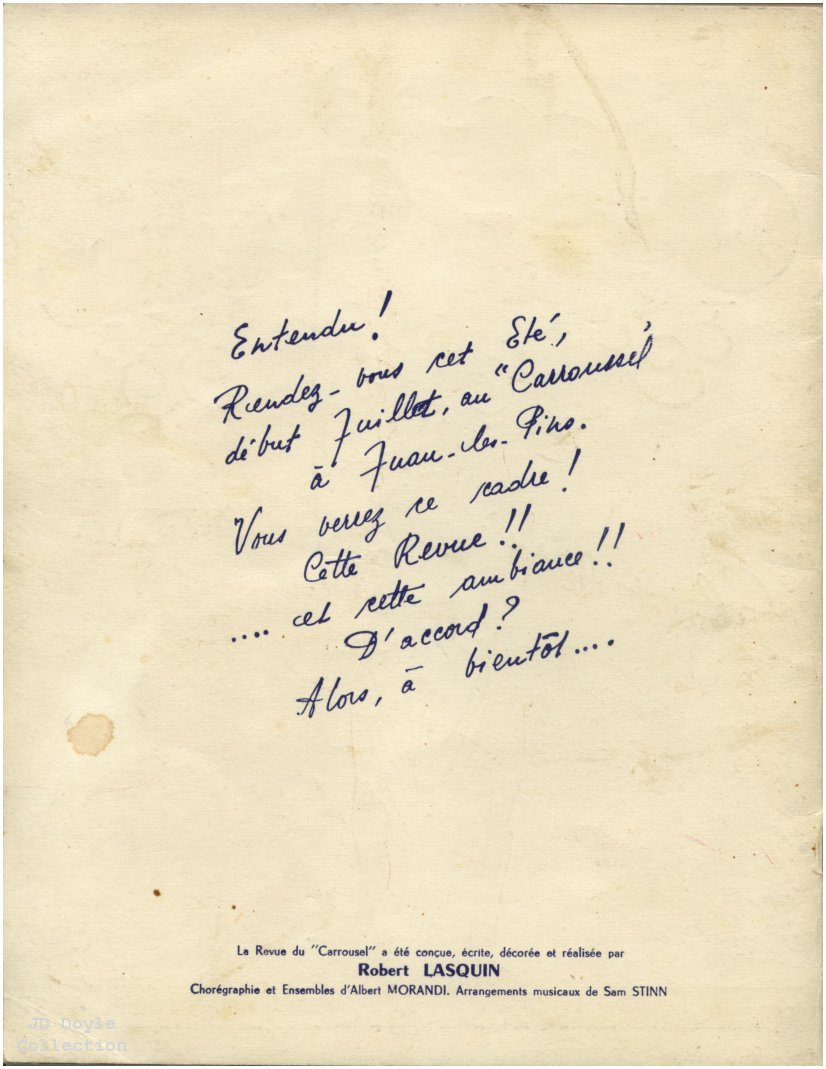 Entendu !
Rendez-vous cet Eté,
début Juillet, au "Carroussel'
à Juan-les-Pins.
Vous verrez ce cadre !
Cette Revue !!
.... et cette ambiance !!
D'accord ?
Alors, à bientôt....
La Revue du "Carrousel" a été conçue, écrite, décorée et réalisée par
Robert LASQUIN
Chorégraphie et Ensembles d'Albert MORANDI. Arrangements musicaux de Sam STINN
JD Doyle
Collection